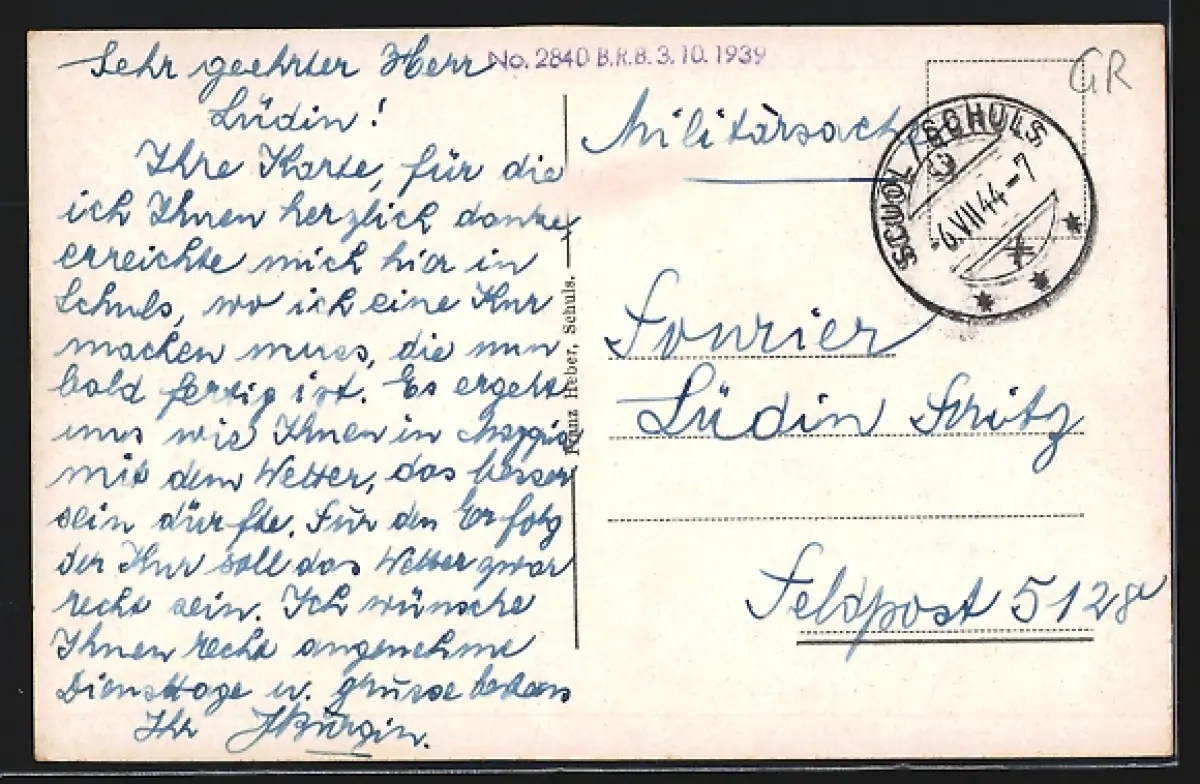 No. 2840 B.R.B. 3. 10. 1939
Sehr geehrter Herr
Lüdin!
Ihre Karte, für die
ich Ihnen herzlich danke,
erreichte mich hier in
Schuls, wo ich eine Kur
machen muss, die nun
bald fertig ist. Es ergeht
uns wie Ihnen in
mit dem Wetter, das besser
sein dürfte. Für den Erfolg
der Kur soll das Wetter zwar
recht sein. Ich wünsche
Ihnen recht angenehme
Diensttage u. grüsse bestens
Ihr Bürgin.
Franz Heber, Schuls.
GR
Militärsache
SCUOL/SCHULS
-6.VII.44-7
Fourier
Lüdin Fritz
Feldpost 5128